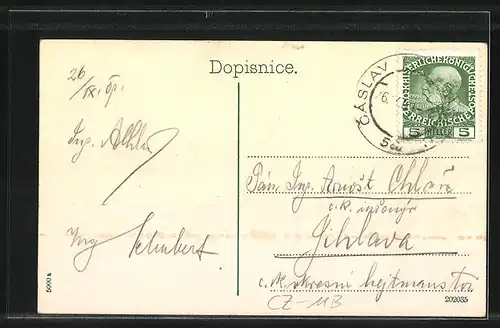 Dopisnice.
26
/IX.
Ing.
Ing Schubert
ČÁSLAV
KAISERLICHE KÖNIGLICHE
ÖSTERREICHISCHE POST
5 HELLER 5
Pán Ing. Arnošt Chlař
c.k. inženýr
Jihlava
c.k. okresní hejtmanství
CZ-MB
5000 a
202035